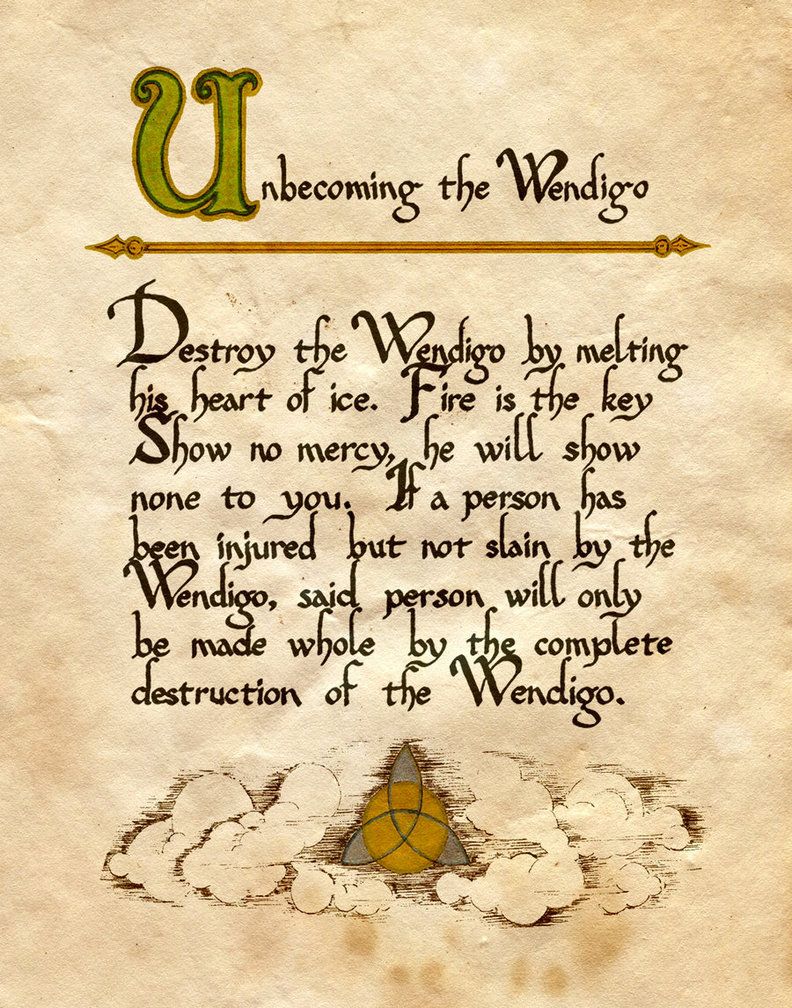 Unbecoming the Wendigo
Destroy the Wendigo by melting
his heart of ice. Fire is the key
Show no mercy, he will show
none to you. If a person has
been injured but not slain by the
Wendigo, said person will only
be made whole by the complete
destruction of the Wendigo.